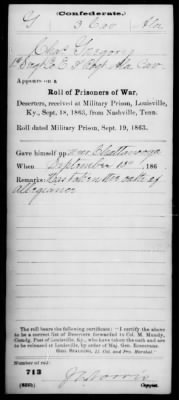 (Confederate.)
G 3 Cav Ala
Chas Gregory
Appears on a
Roll of Prisoners of War,
Deserters, received at Military Prison, Louisville,
Ky., Sept. 18, 1863, from Nashville, Tenn.
Roll dated Military Prison, Sept. 19, 1863.
Gave himself up near Chattanooga
When September 186
Remarks: Has taken the oath of
allegiance
The roll bears the following certificate: "I certify the above
to be a correct list of Deserters forwarded to Col. M. Mundy,
Comdg. Post of Louisville, Ky., who have taken the oath and are
to be released at Louisville, by order of Maj. Gen. Rosecrans.
Geo. Col. and Pro. Marshal."
Number of roll:
713
Copyist.